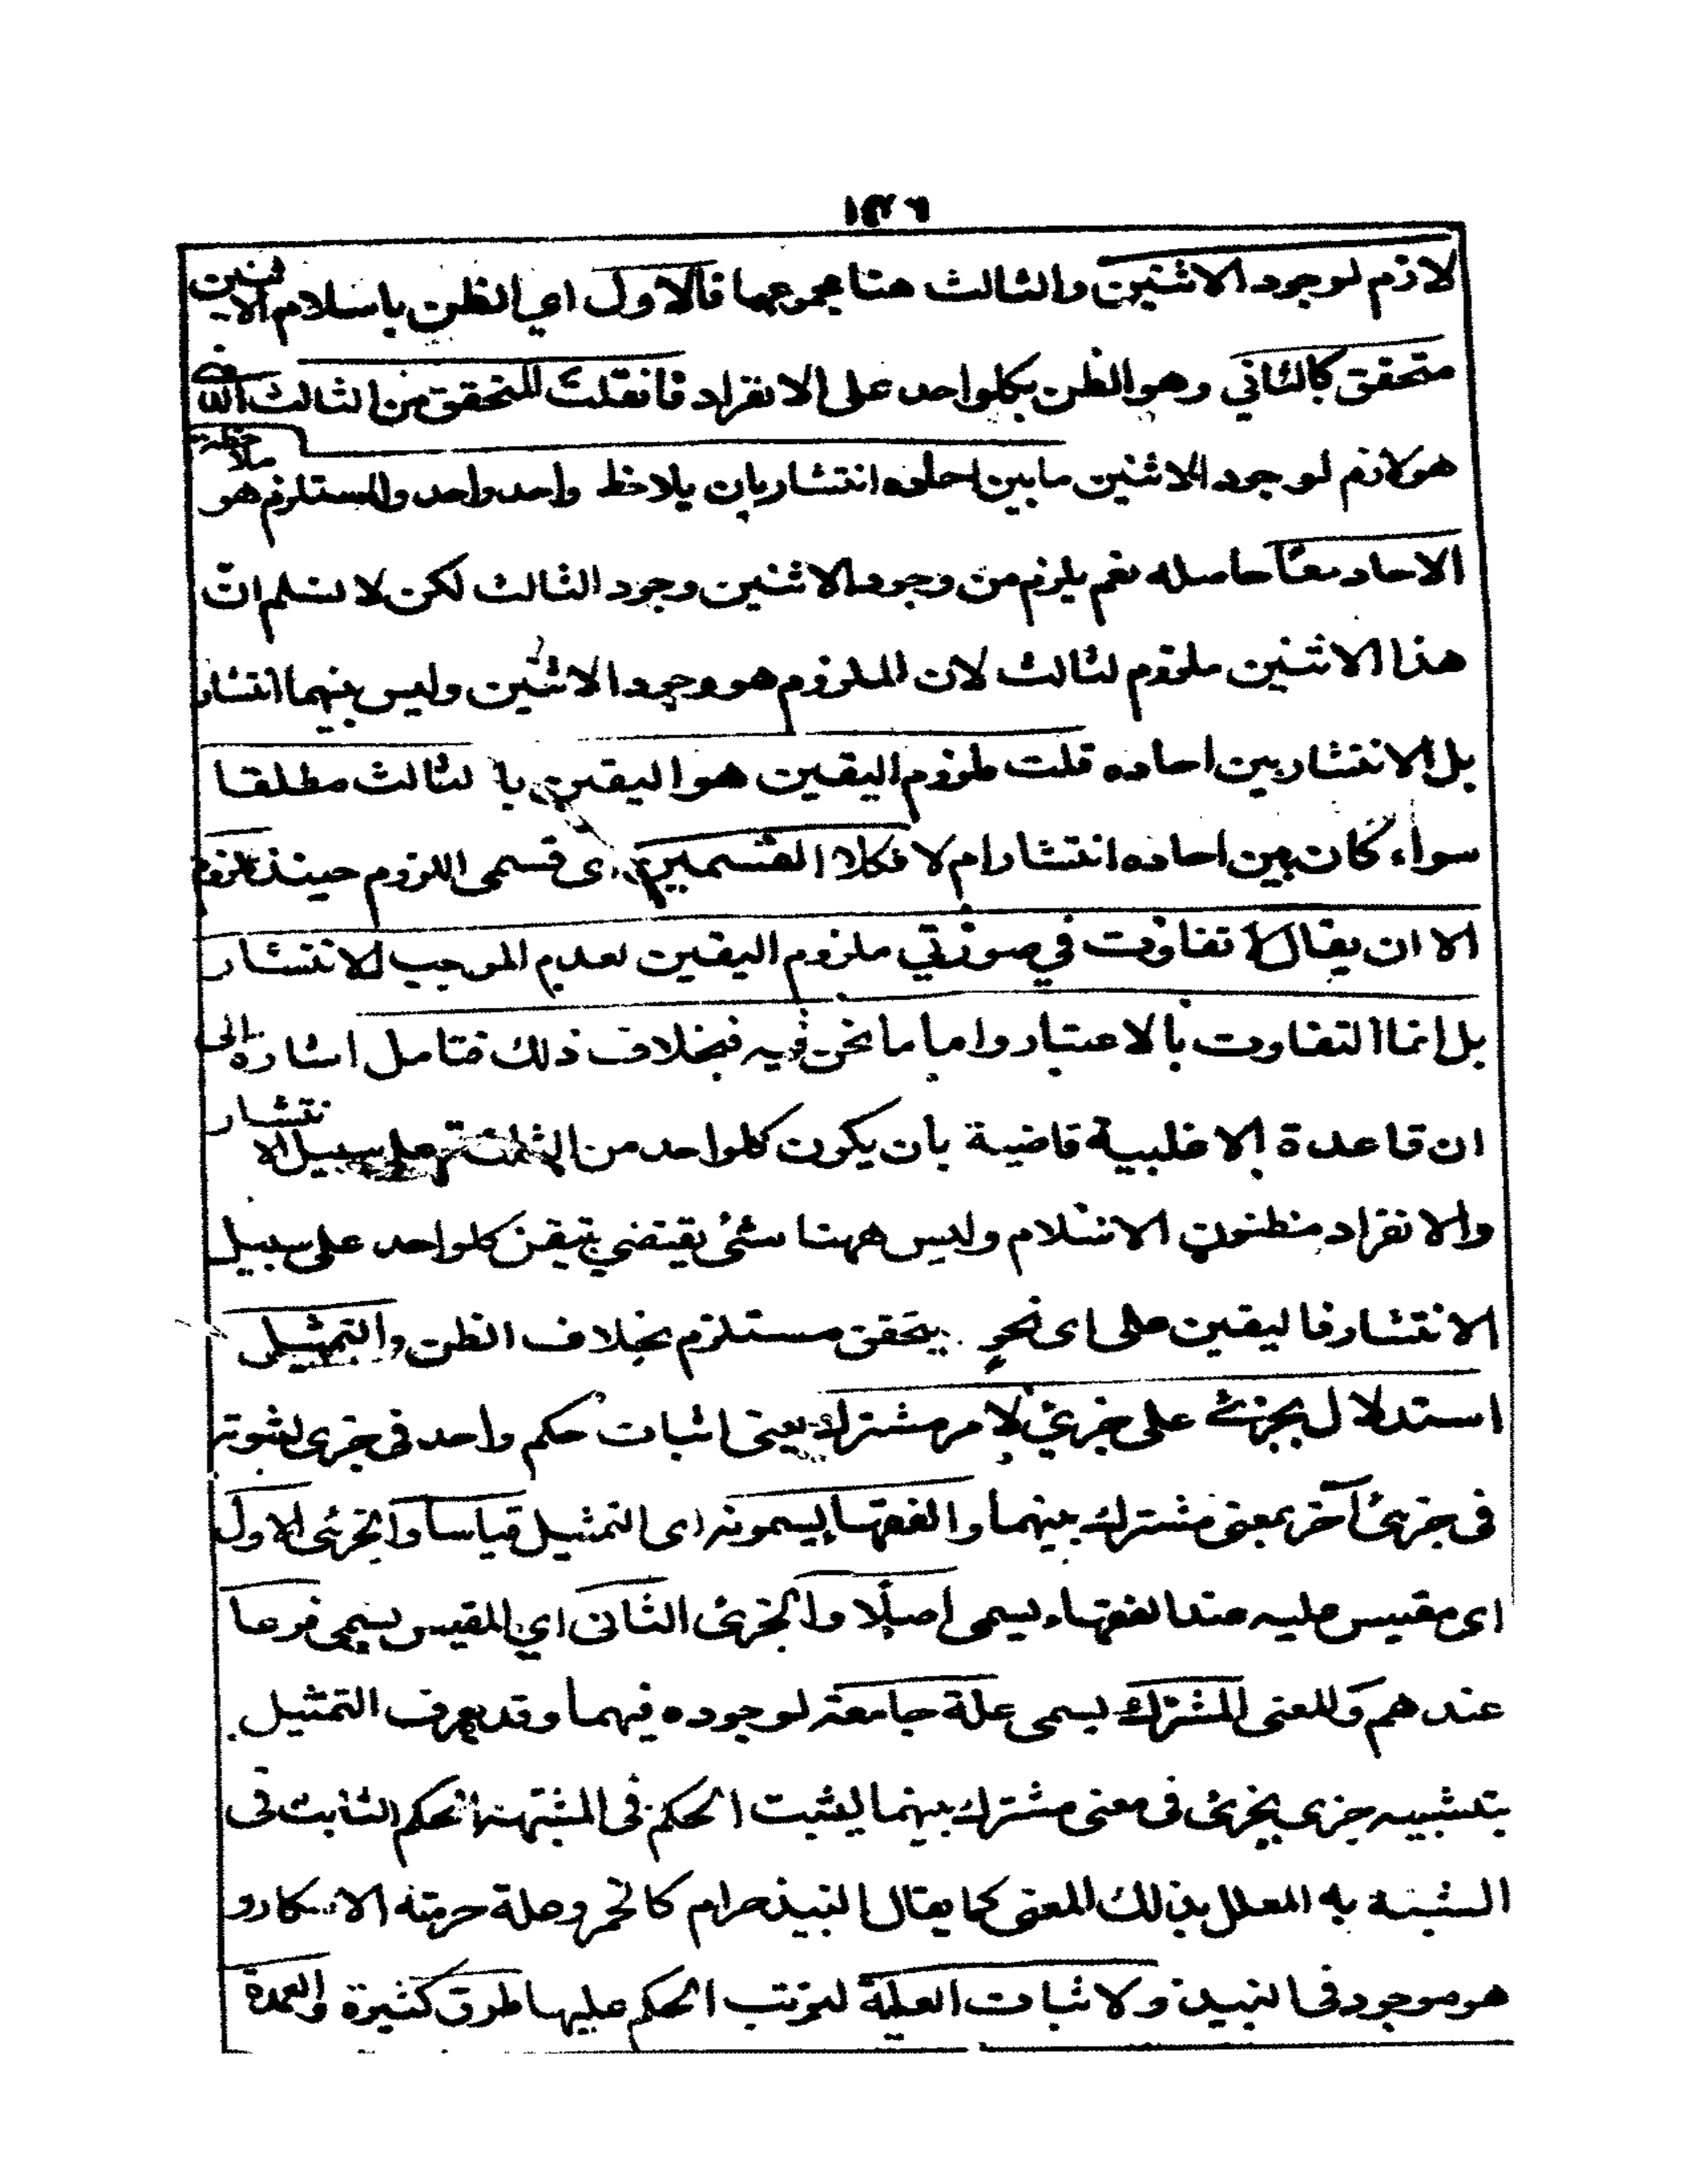 لازم لوجود الاثنين والثالث هنا مجموعها فالاول اي الظن باسلام الاثنين
متحقق كالثاني وهو الظن بكلواحد على الانفراد فانقلت المتحقق من الثالث الذي
هو لازم لوجود الاثنين ما بين احاده انتشار بان يلاحظ واحد واحد والمستلزم هو ملاحظة
الاحاد معًا حاصله نعم يلزم من وجود الاثنين وجود الثالث لكن لا نسلم انّ
هذا الاثنين ملزوم لثالث لان الملزوم هو وجود الاثنين وليس بينهما انتشار
بل الانتشار بين احاده قلت ملزوم اليقين هو اليقين بالثالث مطلقا
سواء كان بين احاده انتشار ام لا فكلا القسمين اى قسمى اللزوم حينئذ
الا ان يقال لا تفاوت في صورتي ملزوم اليقين لعدم الموجب للانتشار
بل انما التفاوت بالاعتبار واما ما نحن فيه فبخلاف ذلك فتامل اشارة الى
ان قاعدة الاغلبية قاضية بان يكون كلواحد من الثلثة على سبيل الانتشار
والانفراد مظنون الاسلام وليس ههنا شئ يقتضي تيقن كلواحد على سبيل
الانتشار فاليقين على اى نحو يتحقق مستلزم بخلاف الظن والتمثيل
استدلال بجزئ على جزئ لامر مشترك يعنى اثبات حكم واحد فى جزى لثبوته
فى جزئ آخر بمعنى مشترك بينهما والفقهاء يسمونه اى التمثيل قياسا والجزئى الاول
اى مقيس عليه عند الفقهاء يسمى اصلًا والجزئى الثانى اي المقيس يسمى فرعا
عندهم والمعنى المشترك يسمى علة جامعة لوجوده فيهما وقد يعرف التمثيل
بتشبيه جزى بجزئ فى معنى مشترك بينهما ليثبت الحكم فى المشبه الحكم الثابت فى
المشبه به المعلل بذلك المعنى كما يقال النبيذ حرام كالخمر وعلة حرمته الاسكار و
هو موجود فى النبيذ ولاثبات العلية لترتب الحكم عليها طرق كثيرة والعمدة